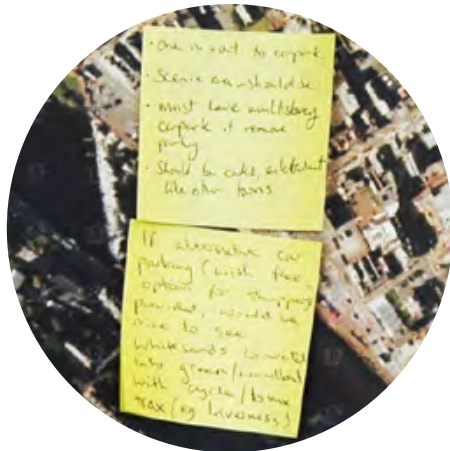 · One in + out to carpark.
· Scenic area should be
· must have multistorey
carpark if remove
parking
· Should be
like other towns
If alternative car
parking (with free
option for shopping
provided, would be
nice to see
Whitesands converted
into green/woodland
with cycle/
(eg Inverness)